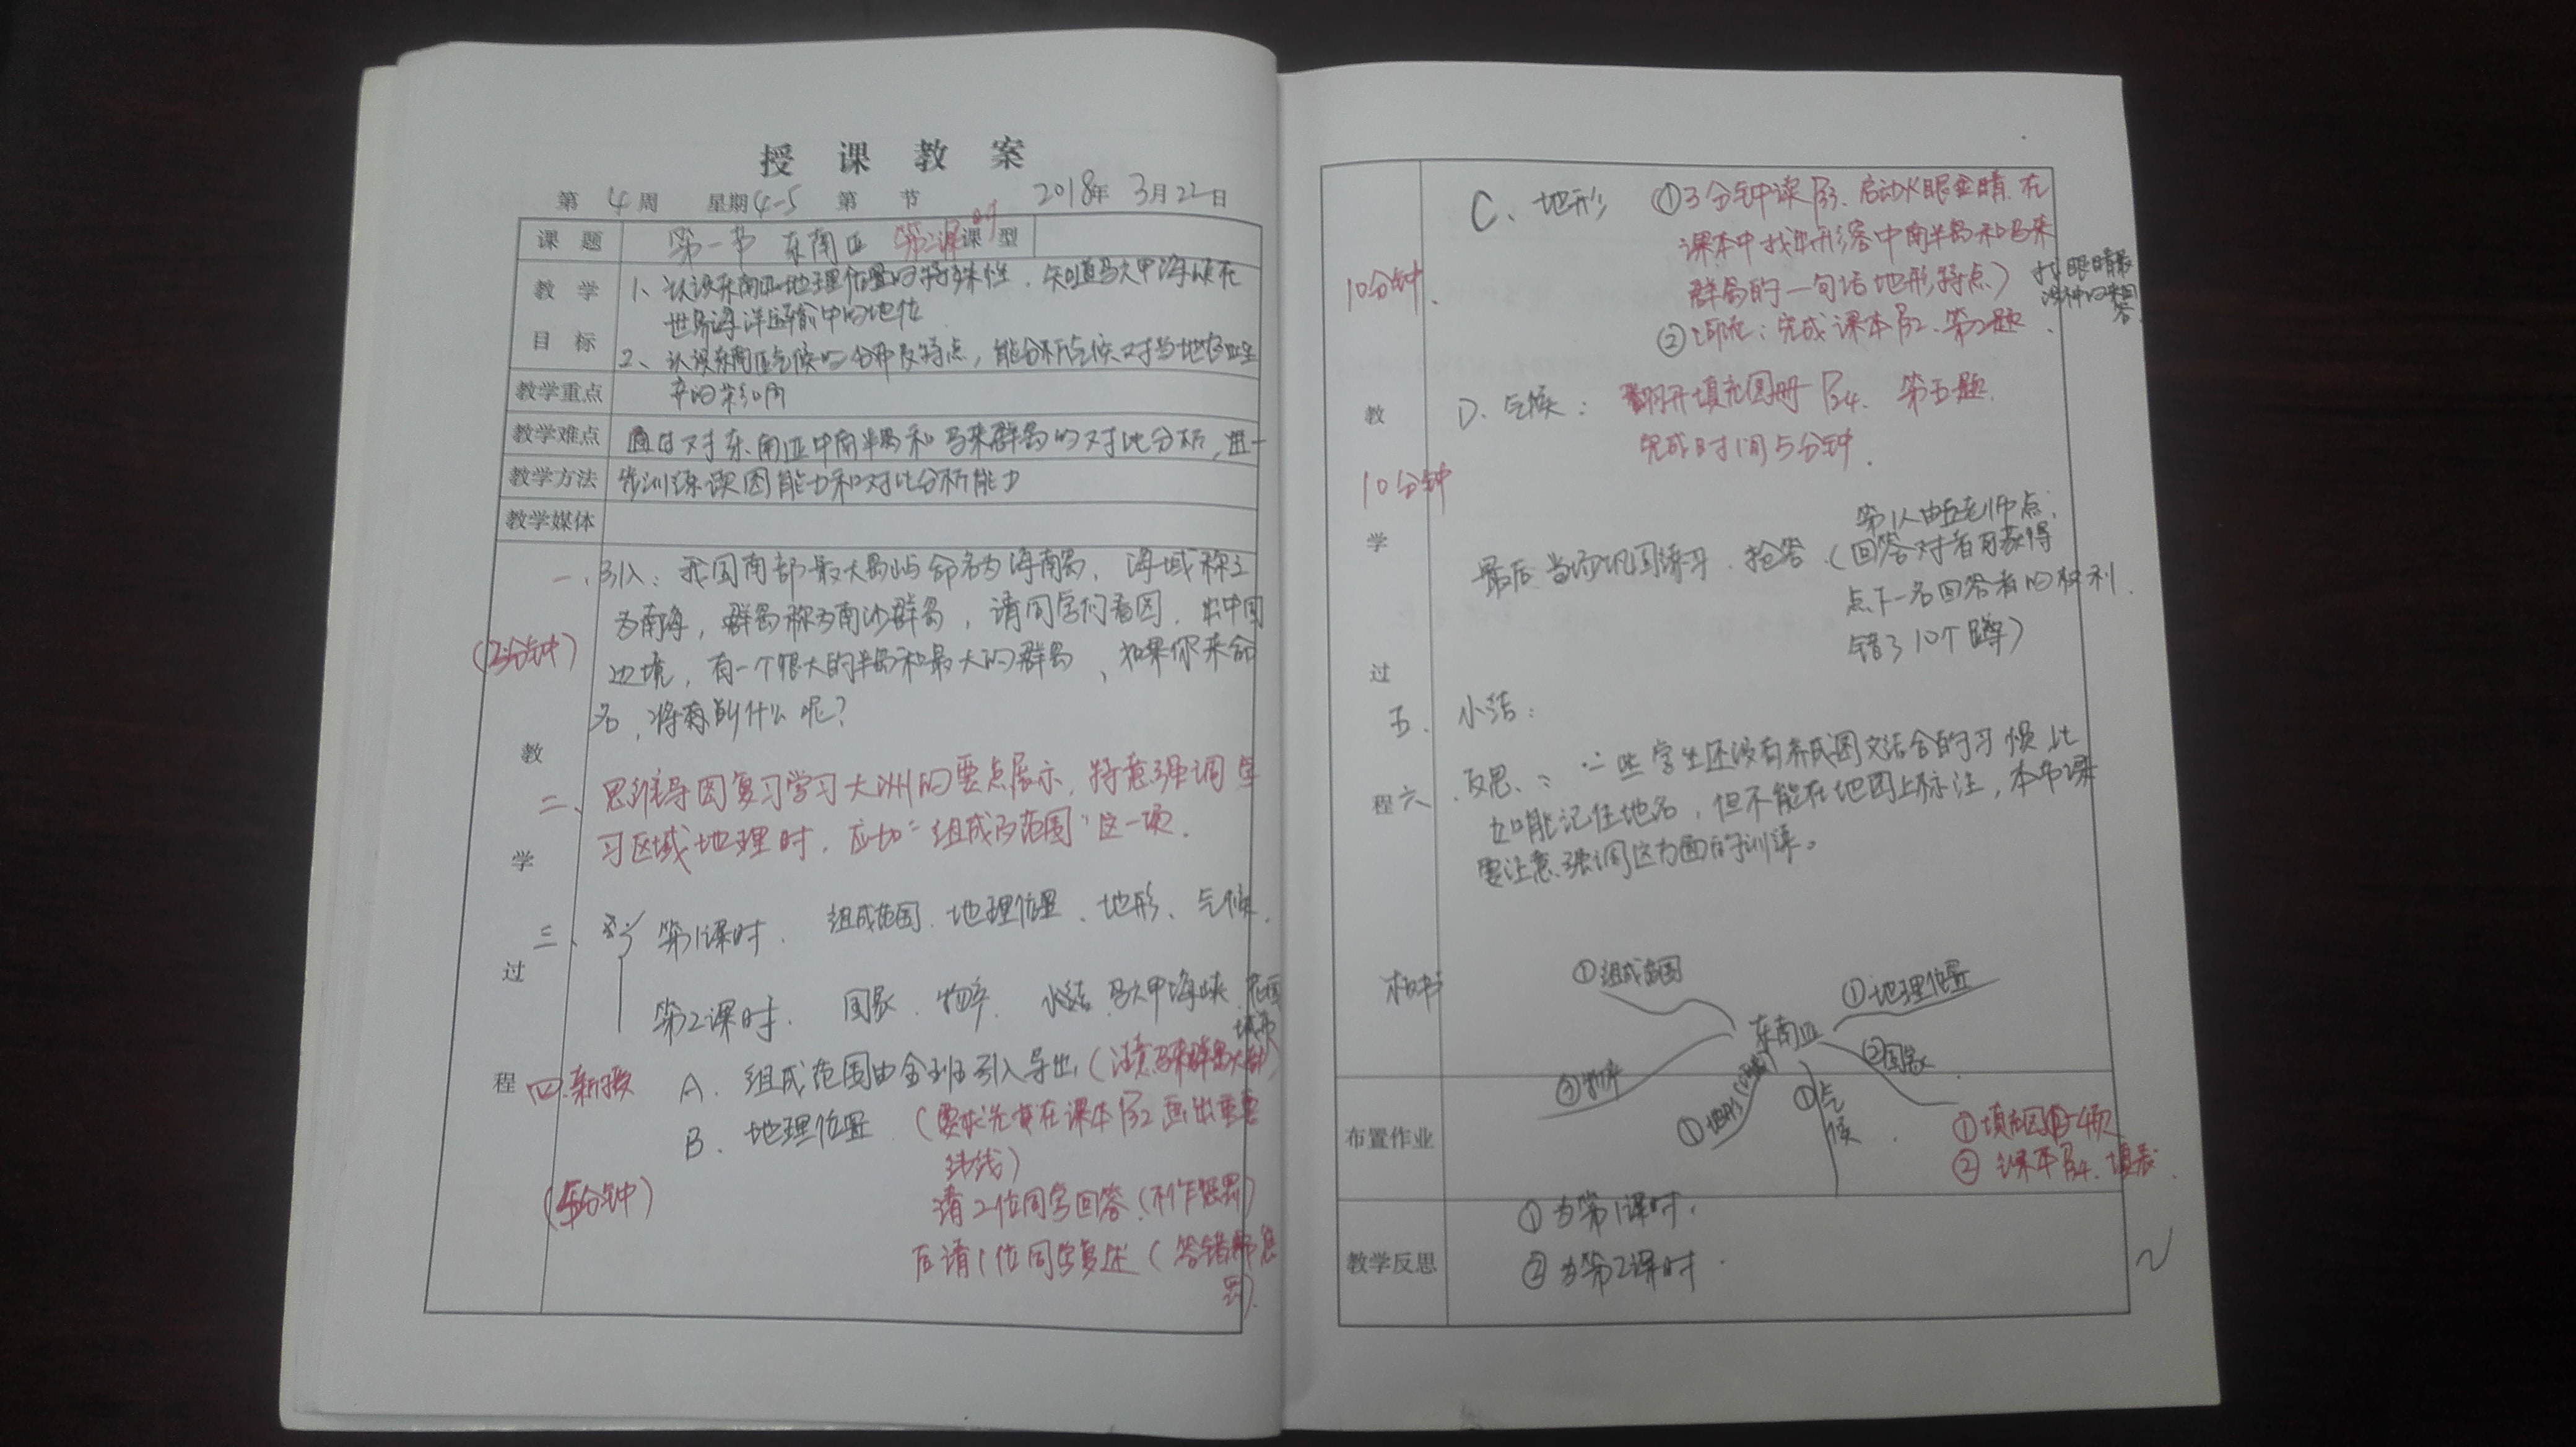 授 课 教 案
第 4 周 星期 4-5 第 节 2018年 3月 22日
课 题 第一节 东南亚 (第2课时) 课 型
教 学 目 标
1、认识东南亚地理位置的特殊性,知道马六甲海峡在
世界海洋运输中的地位
2、认识东南亚气候的分布及特点,能分析气候对当地农业生
教学重点 产的影响
教学难点 通过对东南亚中南半岛和马来群岛的对比分析,进一
教学方法 步训练读图能力和对比分析能力
教学媒体
教 学 过 程
一、引入:我国南部最大岛屿命名为海南岛,海域称之
为南海,群岛称为南沙群岛,请同学们看图,出中国
(3分钟) 边境,有一个很大的半岛和最大的群岛,如果你来命
名,将称到什么呢?
二、思维导图复习学习大洲的要点展示,特意强调学
习区域地理时,应加“组成及范围”这一项.
三、 第1课时. 组成范围、地理位置、地形、气候.
第2课时. 国家、物产、小结.马六甲海峡.
填充
四.新授 A. 组成范围由全班引入导出,(注意马来群岛
B. 地理位置.(要求先其在课本P32画出重要
纬线)
(5分钟) 请2位同学回答.(不作惩罚)
后请1位同学复述(答错
罚).
教 学 过 程
C、地形 ①3分钟读P33.启动火眼金睛.在
课本中找出形容中南半岛和马来
10分钟. 群岛的一句话地形特点)
找眼睛最
回
答
②完成课本P32、第2题.
D、气候: 翻开填充图册P24、第五题.
完成时间5分钟.
10分钟
最后当场巩固练习.抢答(第1人由老师点;
回答对者可获得
点下一名回答者的权利.
错了10个蹲)
五. 小结:
六.反思:一些学生还没有养成图文结合的习惯.比
如能记住地名,但不能在地图上标注,本节课
要注意强调这方面的训练。
板书
①组成范围
①地理位置
东南亚
②国家
②物产
①地形
①气候
布置作业
①填充图册
②课本P34.填表.
教学反思
①为第1课时.
②为第2课时.